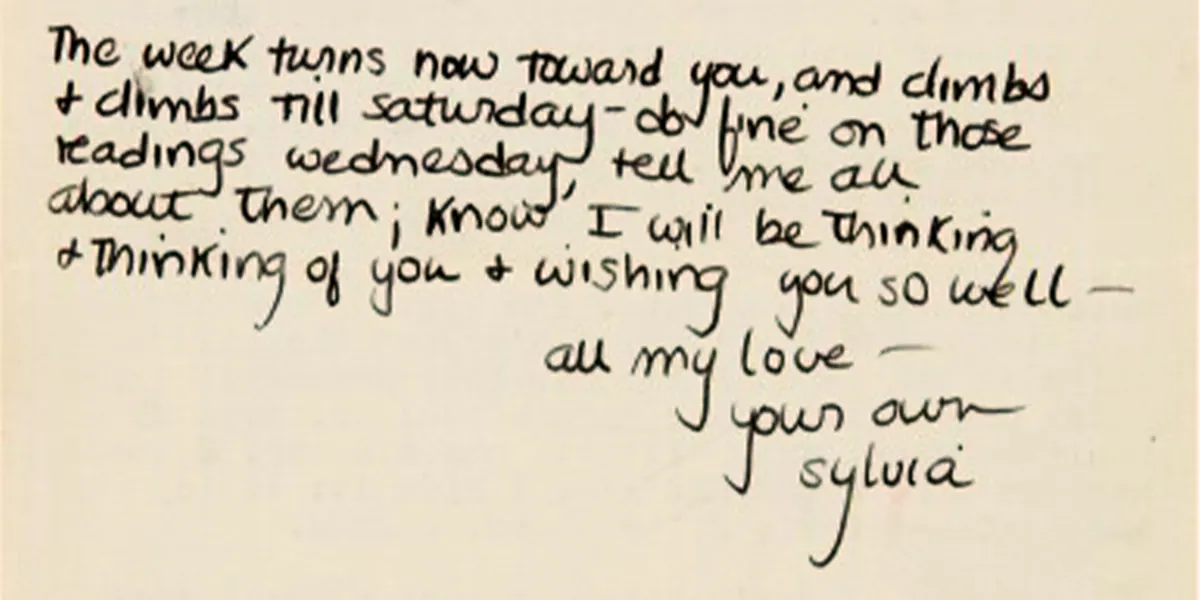 The week turns now toward you, and climbs
+ climbs till saturday - do fine on those
readings wednesday, tell me all
about them; know I will be thinking
+ thinking of you + wishing you so well —
all my love —
your own
sylvia